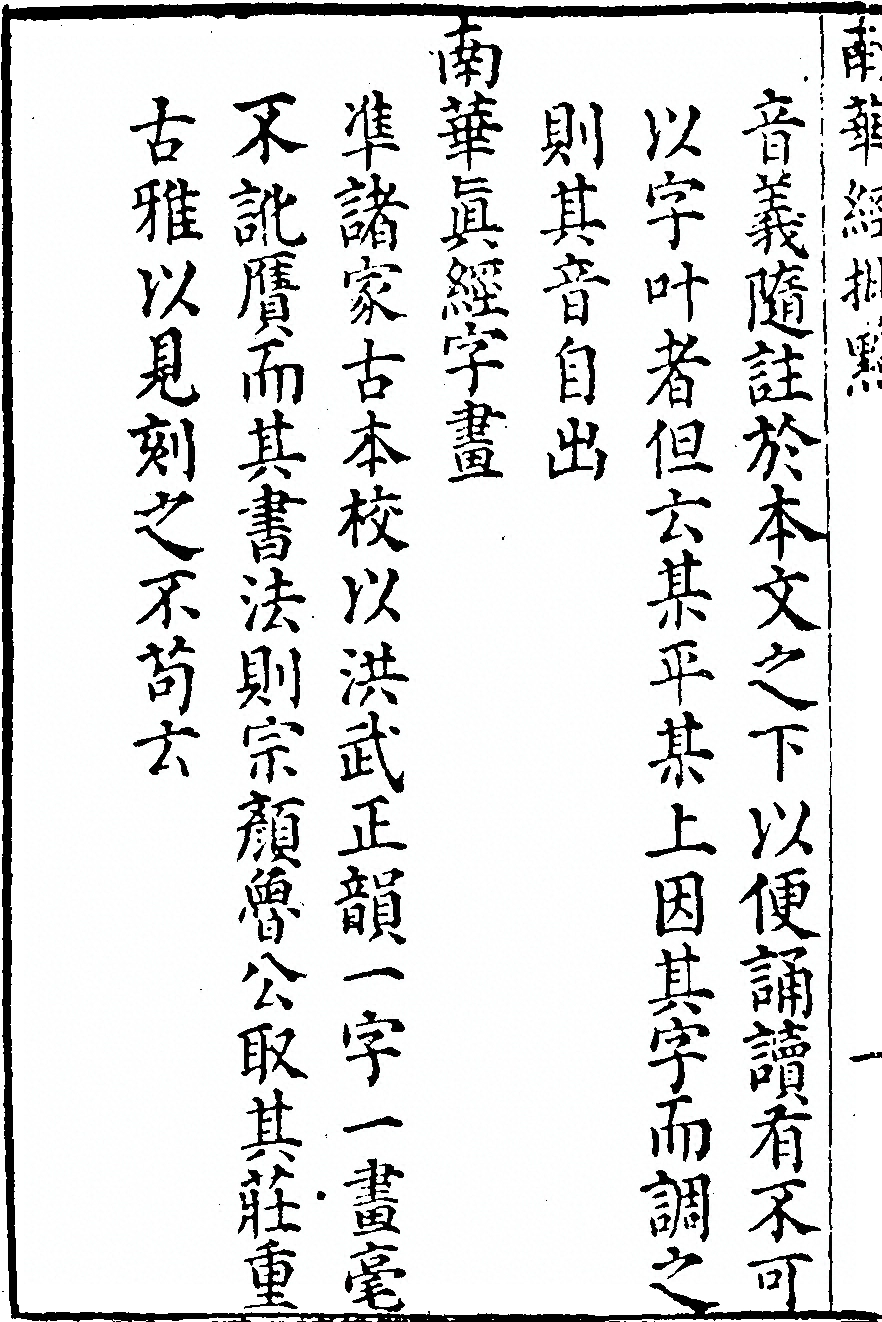 南華經批點
一
音義隨註於本文之下以便誦讀有不可
以字叶者但云某平某上因其字而調之
則其音自出
南華眞經字畫
准諸家古本校以洪武正韻一字一畫毫
不訛贗而其書法則宗顏魯公取其莊重
古雅以見刻之不苟云